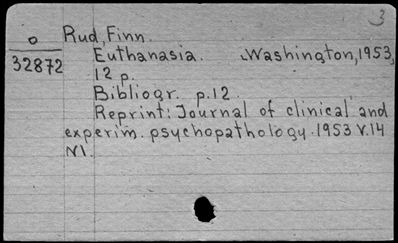 3
o Rud, Finn.
32872 Euthanasia. Washington, 1953,
12 p.
Bibliogr. p.12.
Reprint: Journal of clinical and
experim. psychopathology. 1953 v.14
N1.